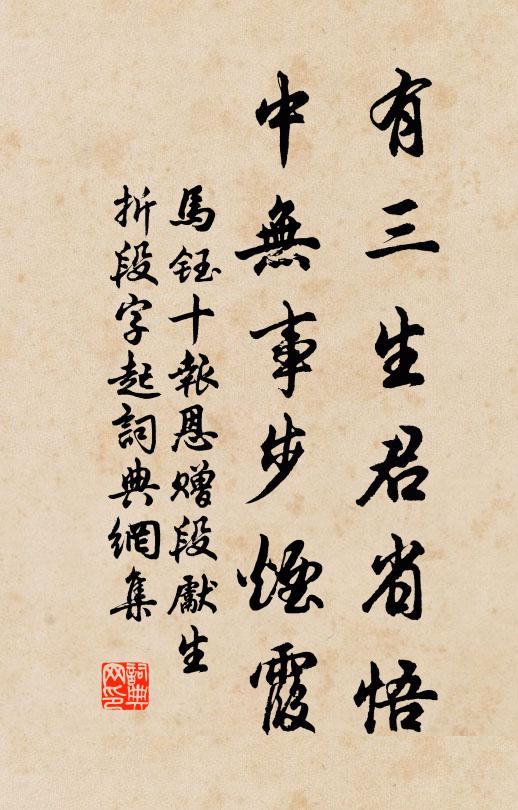 有三生君省悟
中無事步煙霞
馬鈺十報恩贈段獻生
折段字起詞典網集
詞典網印